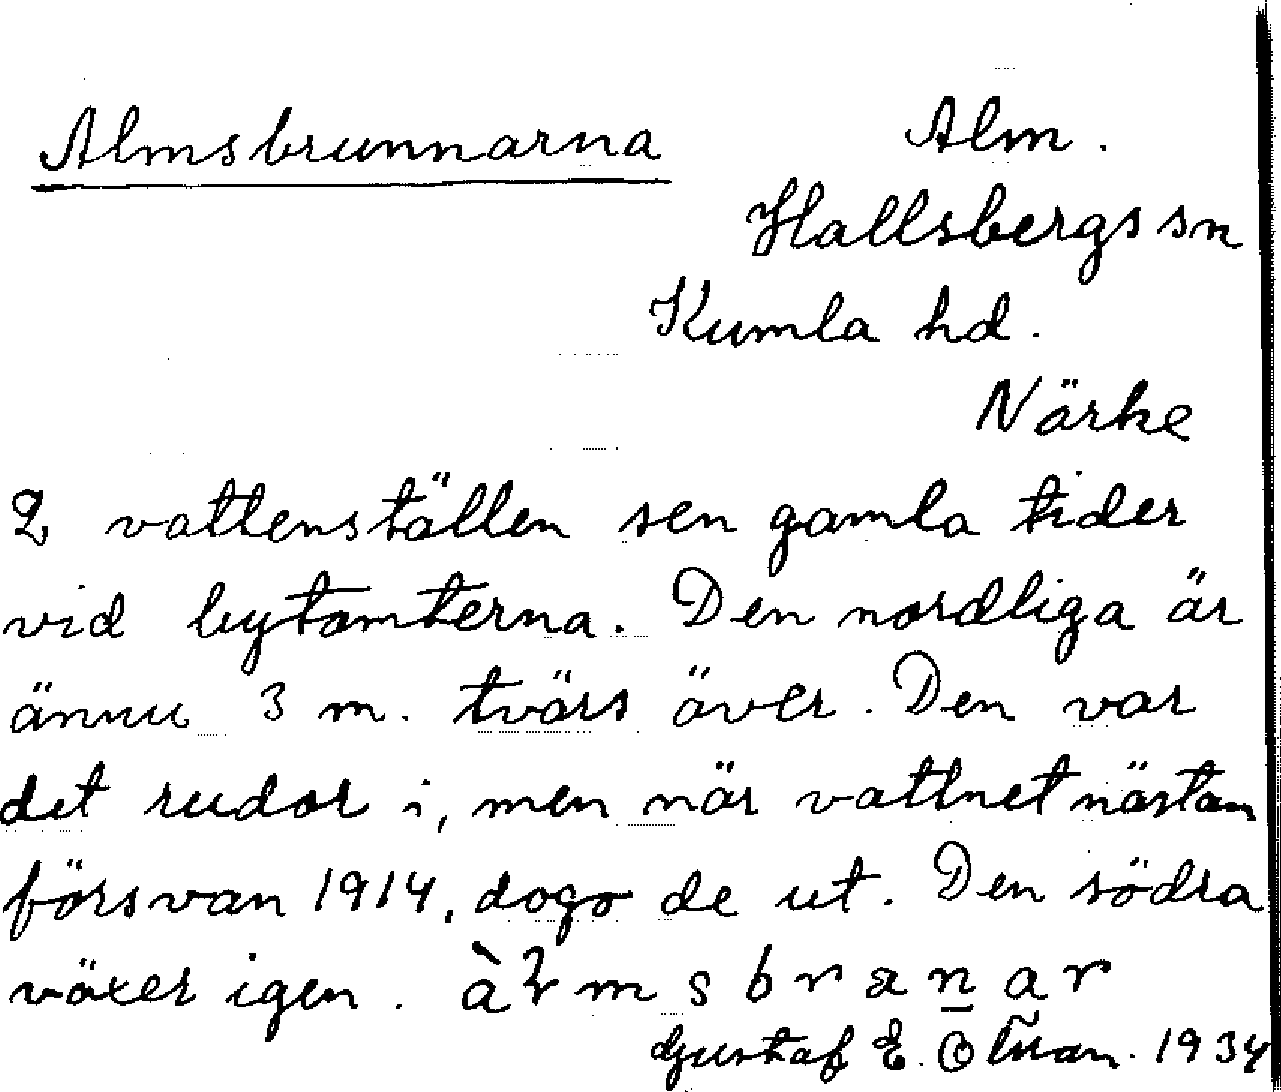 Almsbrunnarna
Alm.
Hallsbergs sn
Kumla hd.
Närke
2 vattenställen sen gamla tider
vid bytomterna. Den nordliga är
ännu 3 m. tvärs över. Den var
det rudor i, men när vattnet nästan
försvan 1914, dogo de ut. Den södra
växer igen.
Gustaf E. 1934